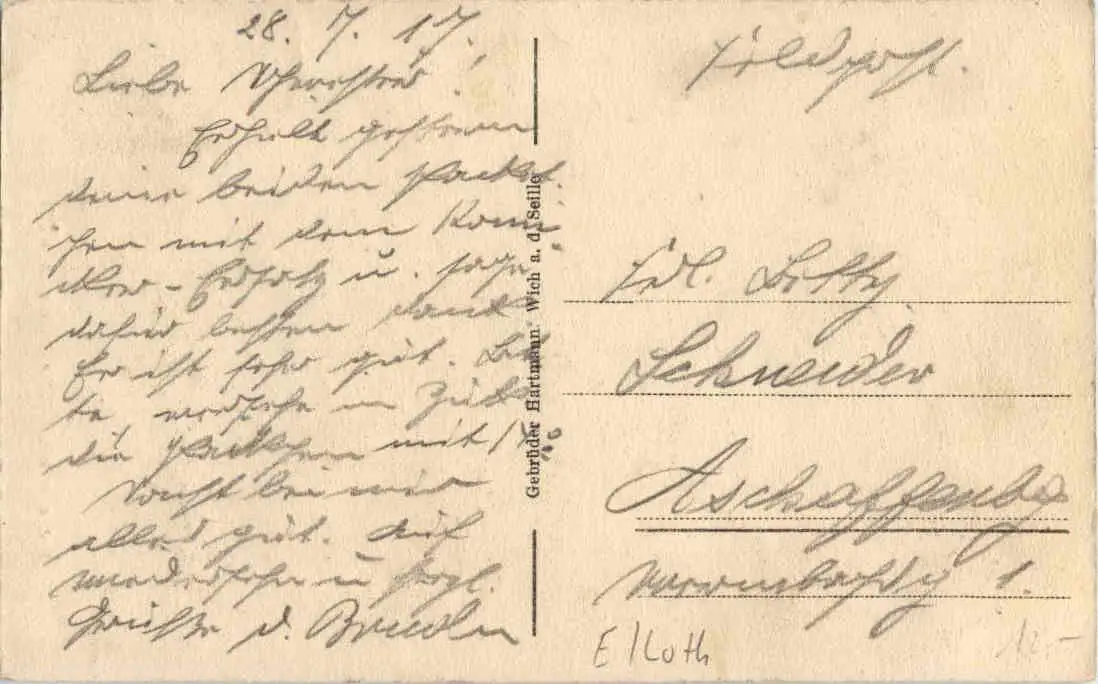 28. 7. 17.
Liebe Schwester!
Erhielt gestern
deine beiden Packet-
chen mit dem
Ersatz u. sage
dafür besten Dank
Er ist sehr gut. Bit
te, versehe in Zuk
die Päckchen mit
Sonst bei mir
alles gut. Auf
wiedersehn u. herzl.
Grüsse d. Bruder
Gebrüder Hartmann. Wich a. d. Seille
Feldpost.
Frl. Betty
Schneider
Aschaffenbg.
1.
E / Loth
12.-